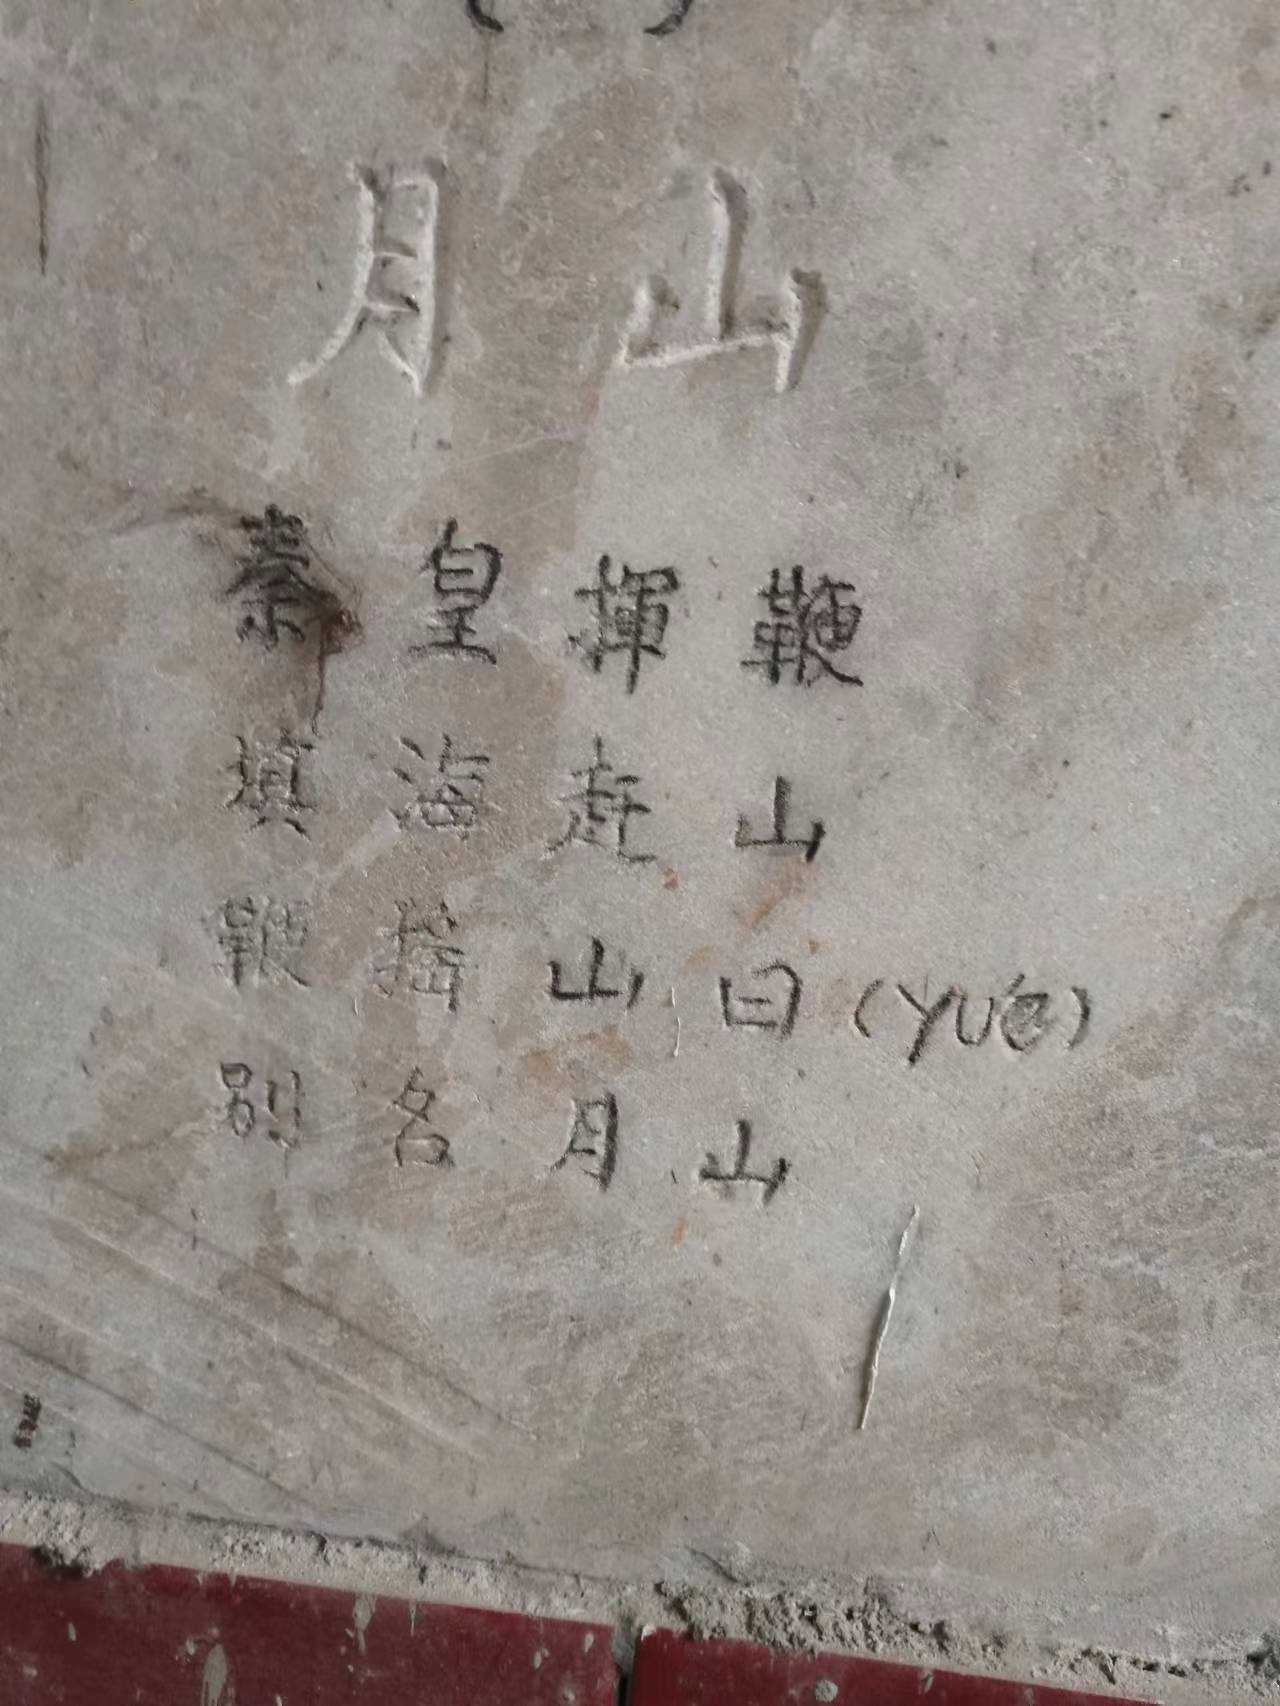 月山
秦皇揮鞭
填海赶山
鞭搖山曰(YUē)
別名月山